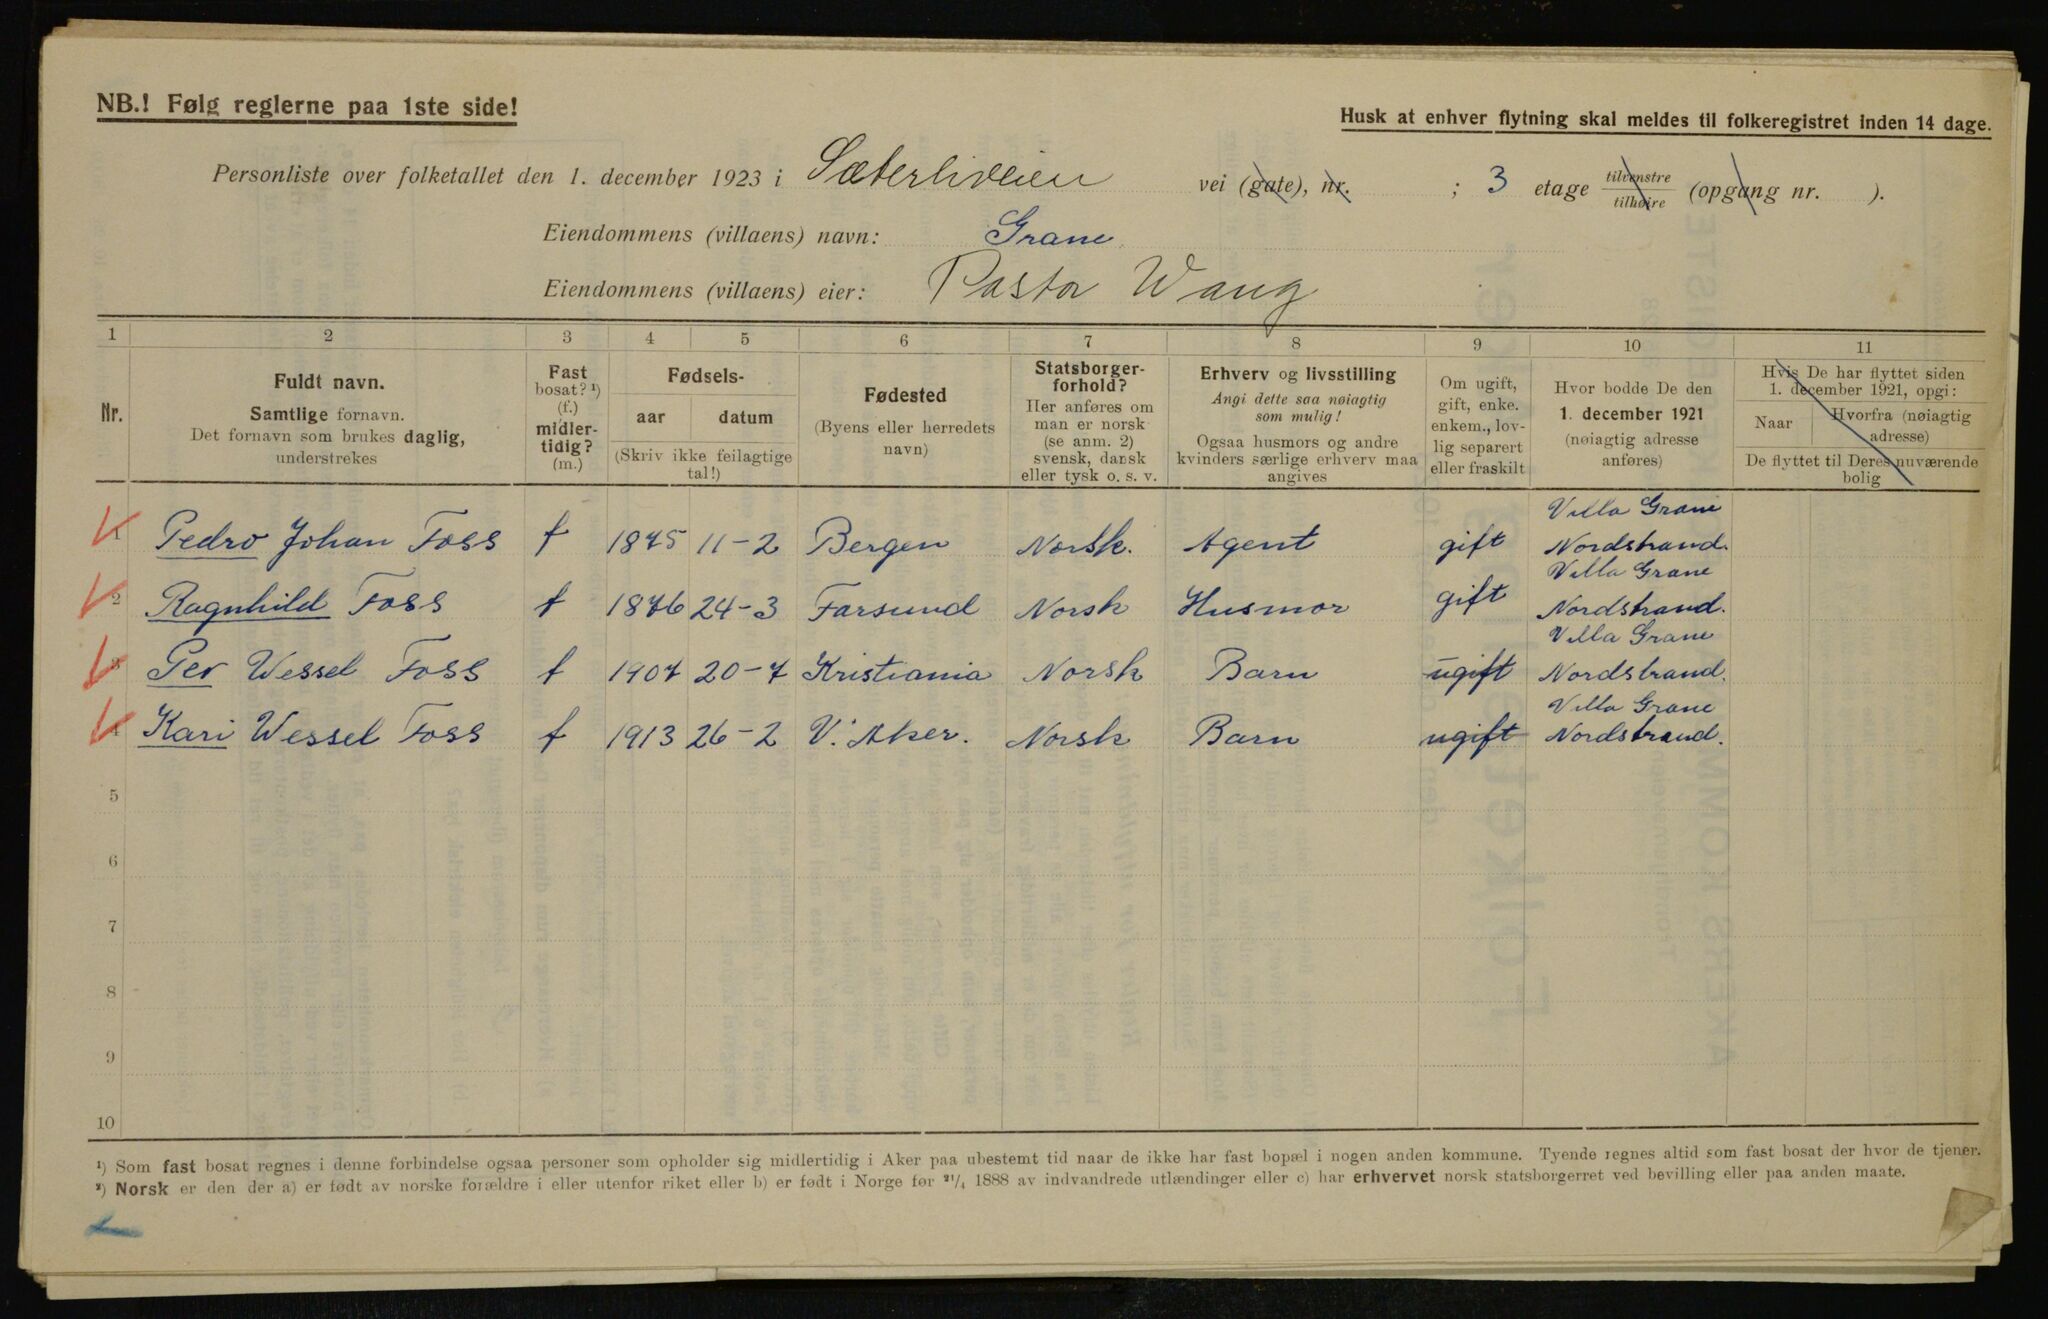 NB.! Følg reglerne paa 1ste side!
Husk at enhver flytning skal meldes til folkeregistret inden 14 dage.
Personliste over folketallet den 1. december 1923 i Sæterliveien vei (gate), nr. ; 3 etage tilvenstre tilhøire (opgang nr. ).
Eiendommens (villaens) navn: Grane
Eiendommens (villaens) eier: Pastor Wang
1 2 3 4 5 6 7 8 9 10 11
Nr.
Fuldt navn.
Samtlige fornavn.
Det fornavn som brukes daglig,
understrekes
Fast
bosat? ¹)
(f.)
midler-
tidig?
(m.)
Fødsels-
aar datum
(Skriv ikke feilagtige
tal!)
Fødested
(Byens eller herredets
navn)
Statsborger-
forhold?
Her anføres om
man er norsk
(se anm. 2)
svensk, dansk
eller tysk o. s. v.
Erhverv og livsstilling
Angi dette saa nøiagtig
som mulig!
Ogsaa husmors og andre
kvinders særlige erhverv maa
angives
Om ugift,
gift, enke.
enkem., lov-
lig separert
eller fraskilt
Hvor bodde De den
1. december 1921
(nøiagtig adresse
anføres)
Hvis De har flyttet siden
1. december 1921, opgi:
Naar
Hvorfra (nøiagtig
adresse)
De flyttet til Deres nuværende
bolig
Villa Grane
1 Pedro Johan Foss f 1875 11-2 Bergen Norsk. Agent gift Nordstrand.
Villa Grane
2 Ragnhild Foss f 1876 24-3 Farsund Norsk Husmor gift Nordstrand.
Villa Grane
3 Per Wessel Foss f 1907 20-7 Kristiania Norsk Barn ugift Nordstrand.
Villa Grane
4 Kari Wessel Foss f 1913 26-2 V. Aker. Norsk Barn ugift Nordstrand.
5
6
7
8
9
10
¹) Som fast bosat regnes i denne forbindelse ogsaa personer som opholder sig midlertidig i Aker paa ubestemt tid naar de ikke har fast bopæl i nogen anden kommune. Tyende regnes altid som fast bosat der hvor de tjener.
²) Norsk er den der a) er født av norske forældre i eller utenfor riket eller b) er født i Norge før ²¹/₄ 1888 av indvandrede utlændinger eller c) har erhvervet norsk statsborgerret ved bevilling eller paa anden maate.